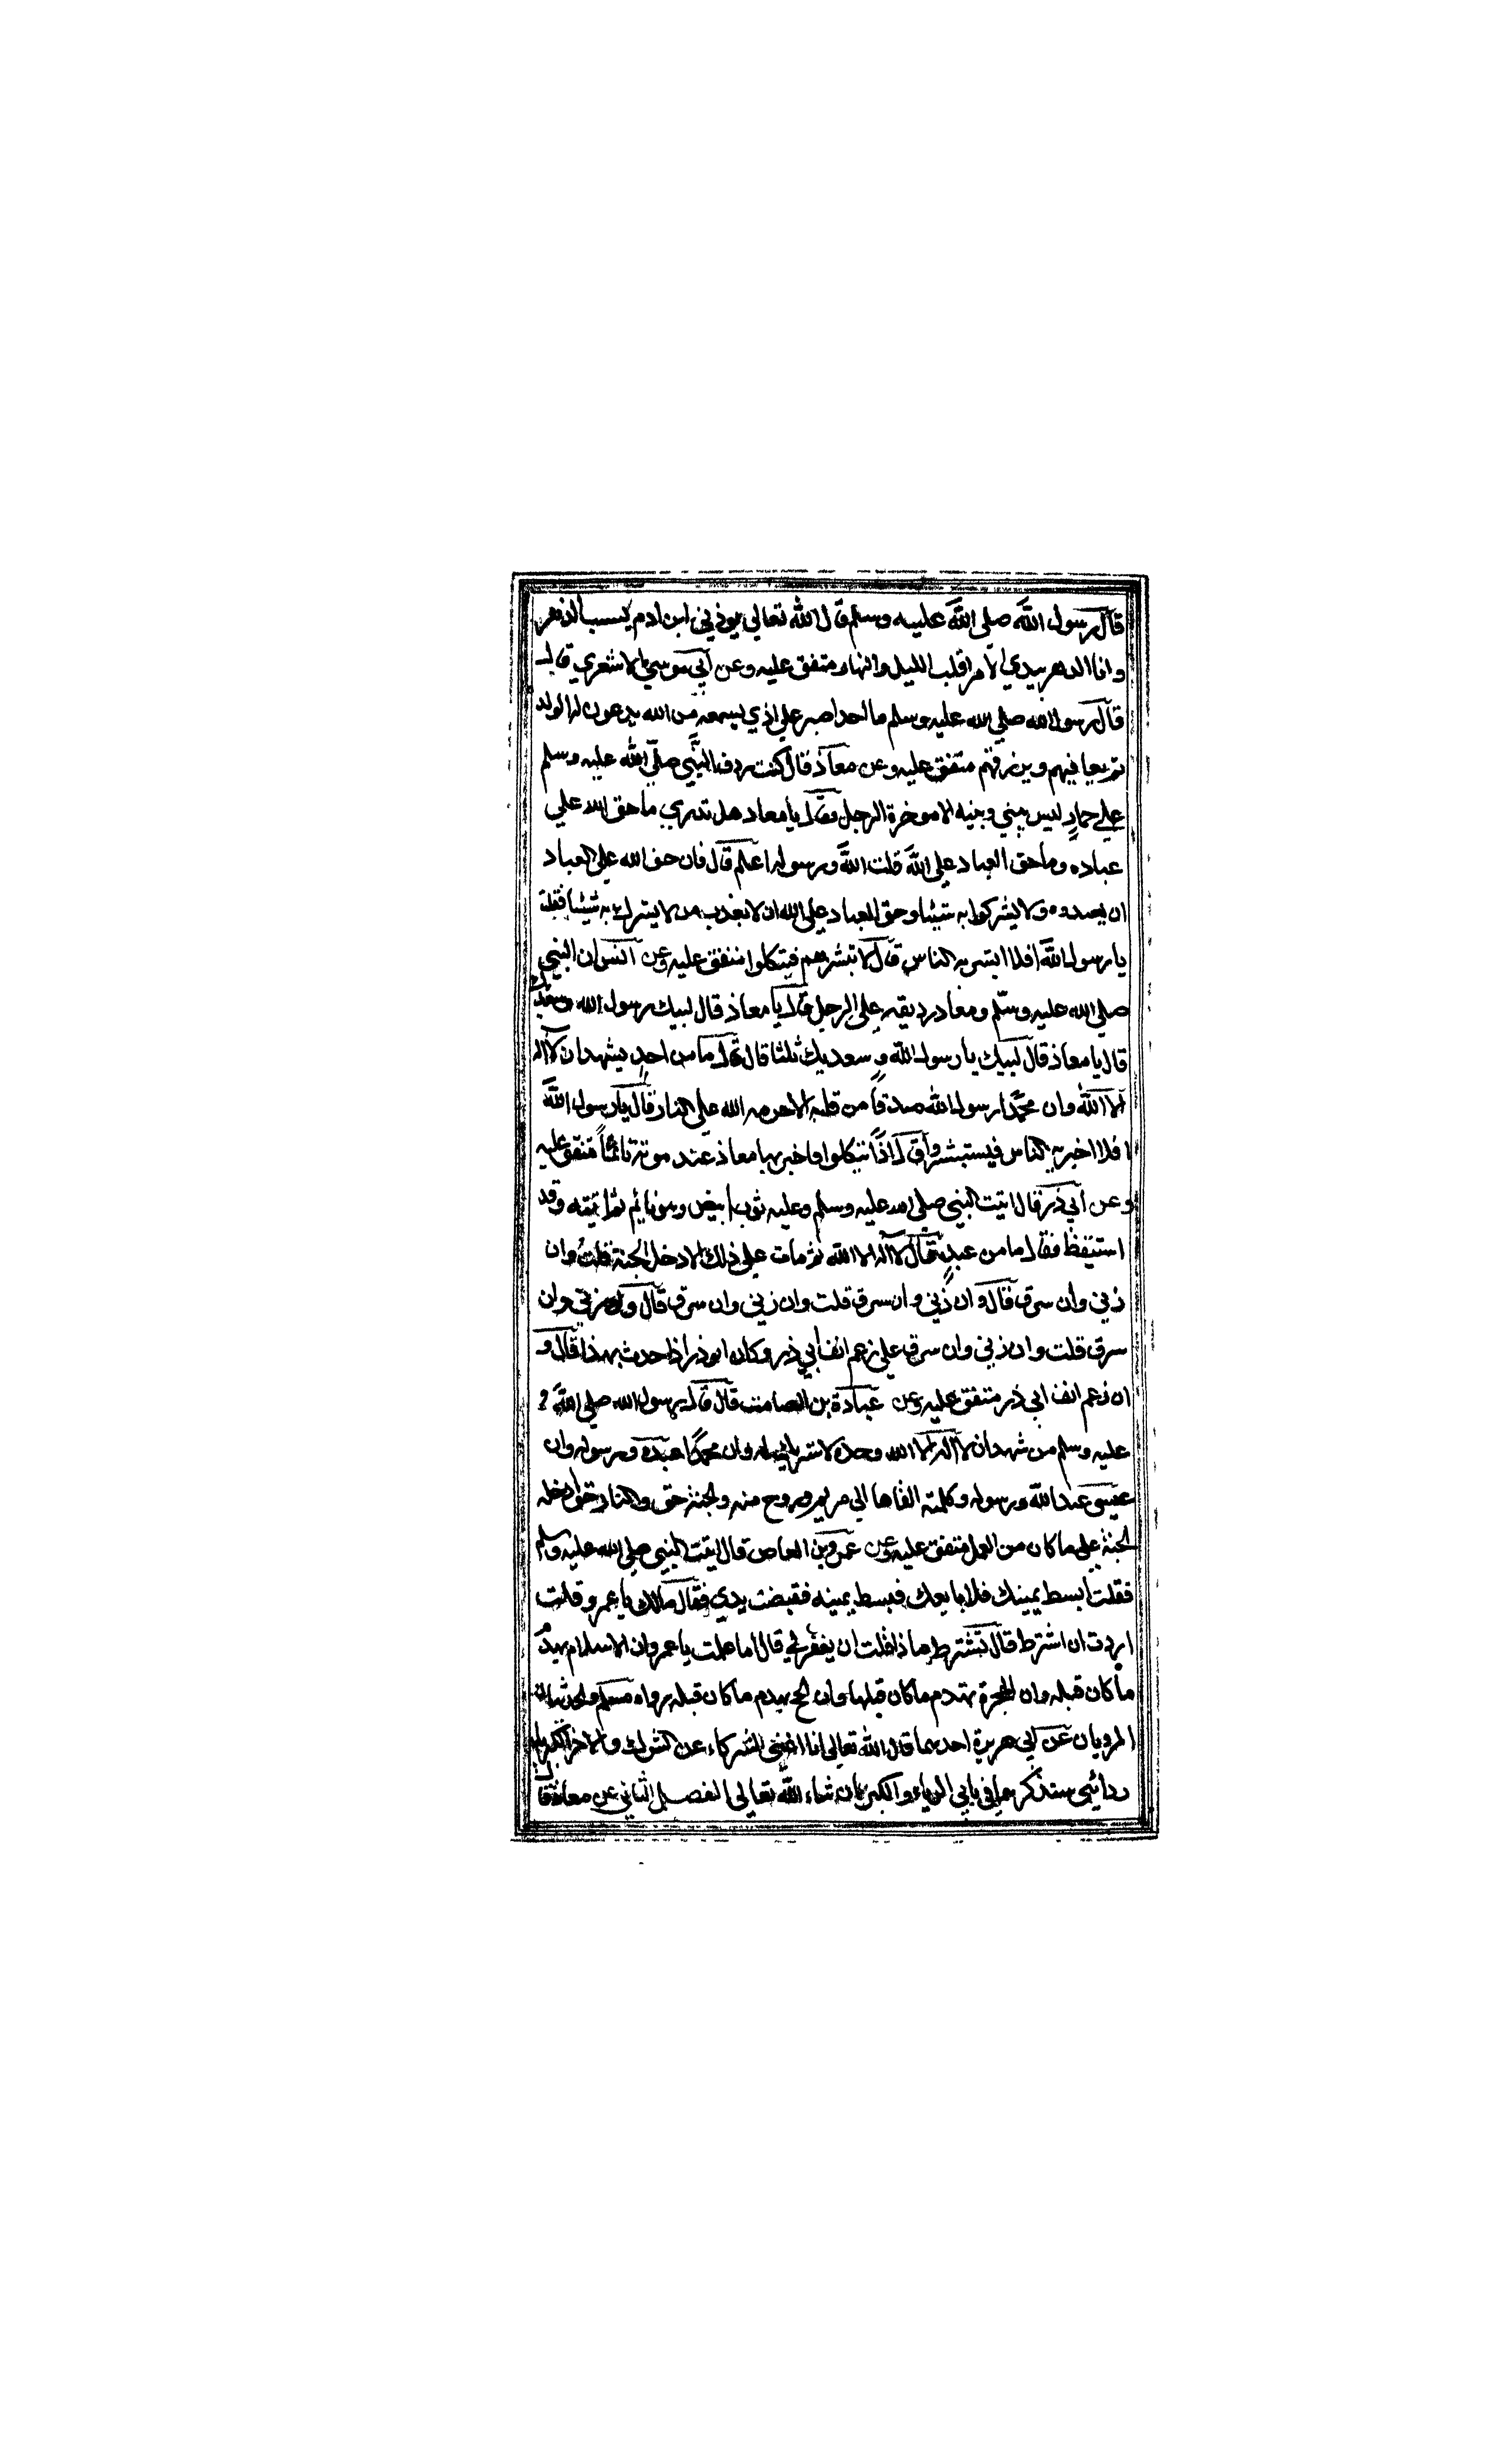 قال رسول الله صلى الله عليه وسلم قال الله تعالى يوذيني ابن ادم يسب الدهر
وانا الدهر بيدي الامر اقلب الليل والنهار متفق عليه وعن ابي موسي الاشعري قال
قال رسول الله صلي الله عليه وسلم ما احد اصبر علي اذي يسمعه من الله يدعون له الولد
ثم يعافيهم ويرزقهم متفق عليه وعن معاذ قال كنت ردف النبي صلي الله عليه وسلم
علي حمار ليس بيني وبينه الا موخرة الرحل فقال يا معاذ هل تدري ما حق الله علي
عباده وما حق العباد علي الله قلت الله ورسوله اعلم قال فان حق الله علي العباد
ان يعبدوه ولا يشركوا به شيئا وحق العباد علي الله ان لا يعذب من لا يشرك به شيئا فقلت
يا رسول الله افلا ابشر به الناس قال لا تبشرهم فيتكلوا متفق عليه وعن انس ان النبي
صلي الله عليه وسلم ومعاذ رديفه علي الرحل قال يا معاذ قال لبيك رسول الله وسعديك
قال يا معاذ قال لبيك يا رسول الله وسعديك ثلثا قال ما من احد يشهد ان لا اله
الا الله وان محمدا رسول الله صدقا من قلبه الا حرمه الله علي النار قال يا رسول الله
افلا اخبر به الناس فيستبشروا قال اذا يتكلوا فاخبر بها معاذ عند موته تاثما متفق عليه
وعن ابي ذر قال اتيت النبي صلي الله عليه وسلم وعليه ثوب ابيض وهو نايم ثم اتيته وقد
استيقظ فقال ما من عبد قال لا اله الا الله ثم مات علي ذلك الا دخل الجنة قلت وان
زني وان سرق قال وان زني وان سرق قلت وان زني وان سرق قال وان زني وان
سرق قلت وان زني وان سرق علي رغم انف ابي ذر وكان ابو ذر اذا حدث بهذا قال و
ان رغم انف ابي ذر متفق عليه وعن عبادة بن الصامت قال قال رسول الله صلي الله
عليه وسلم من شهد ان لا اله الا الله وحده لا شريك له وان محمدا عبده ورسوله وان
عيسي عبد الله ورسوله وكلمته القاها الي مريم وروح منه والجنة حق والنار حق ادخله
الجنة علي ما كان من العمل متفق عليه وعن عمرو بن العاص قال اتيت النبي صلي الله عليه وسلم
فقلت ابسط يمينك فلابايعك فبسط يمينه فقبضت يدي فقال مالك يا عمرو قلت
اردت ان اشترط قال تشترط ماذا قلت ان يغفر لي قال اما علمت يا عمرو ان الاسلام يهدم
ما كان قبله وان الهجرة تهدم ما كان قبلها وان الحج يهدم ما كان قبله رواه مسلم والحديثان
المرويان عن ابي هريرة احدهما قال الله تعالي انا اغني الشركاء عن الشرك والاخر الكبرياء
ردائي سنذكرهما في بابي الرياء والكبر ان شاء الله تعالي الفصل الثاني عن معاذ قال